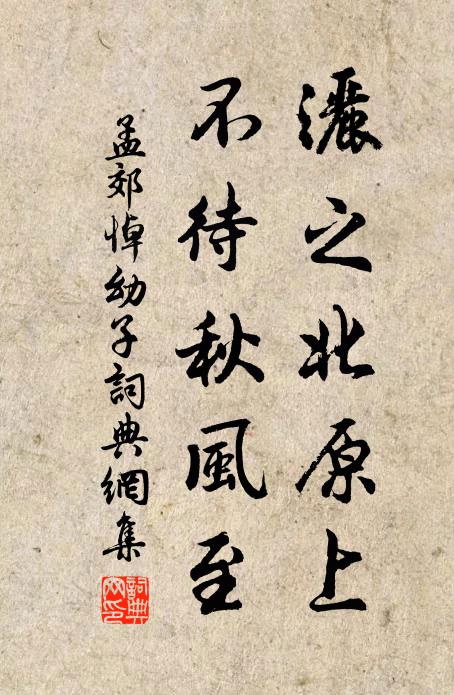 灑之北原上
不待秋風至
孟郊悼幼子詞典網集
詞典
网印